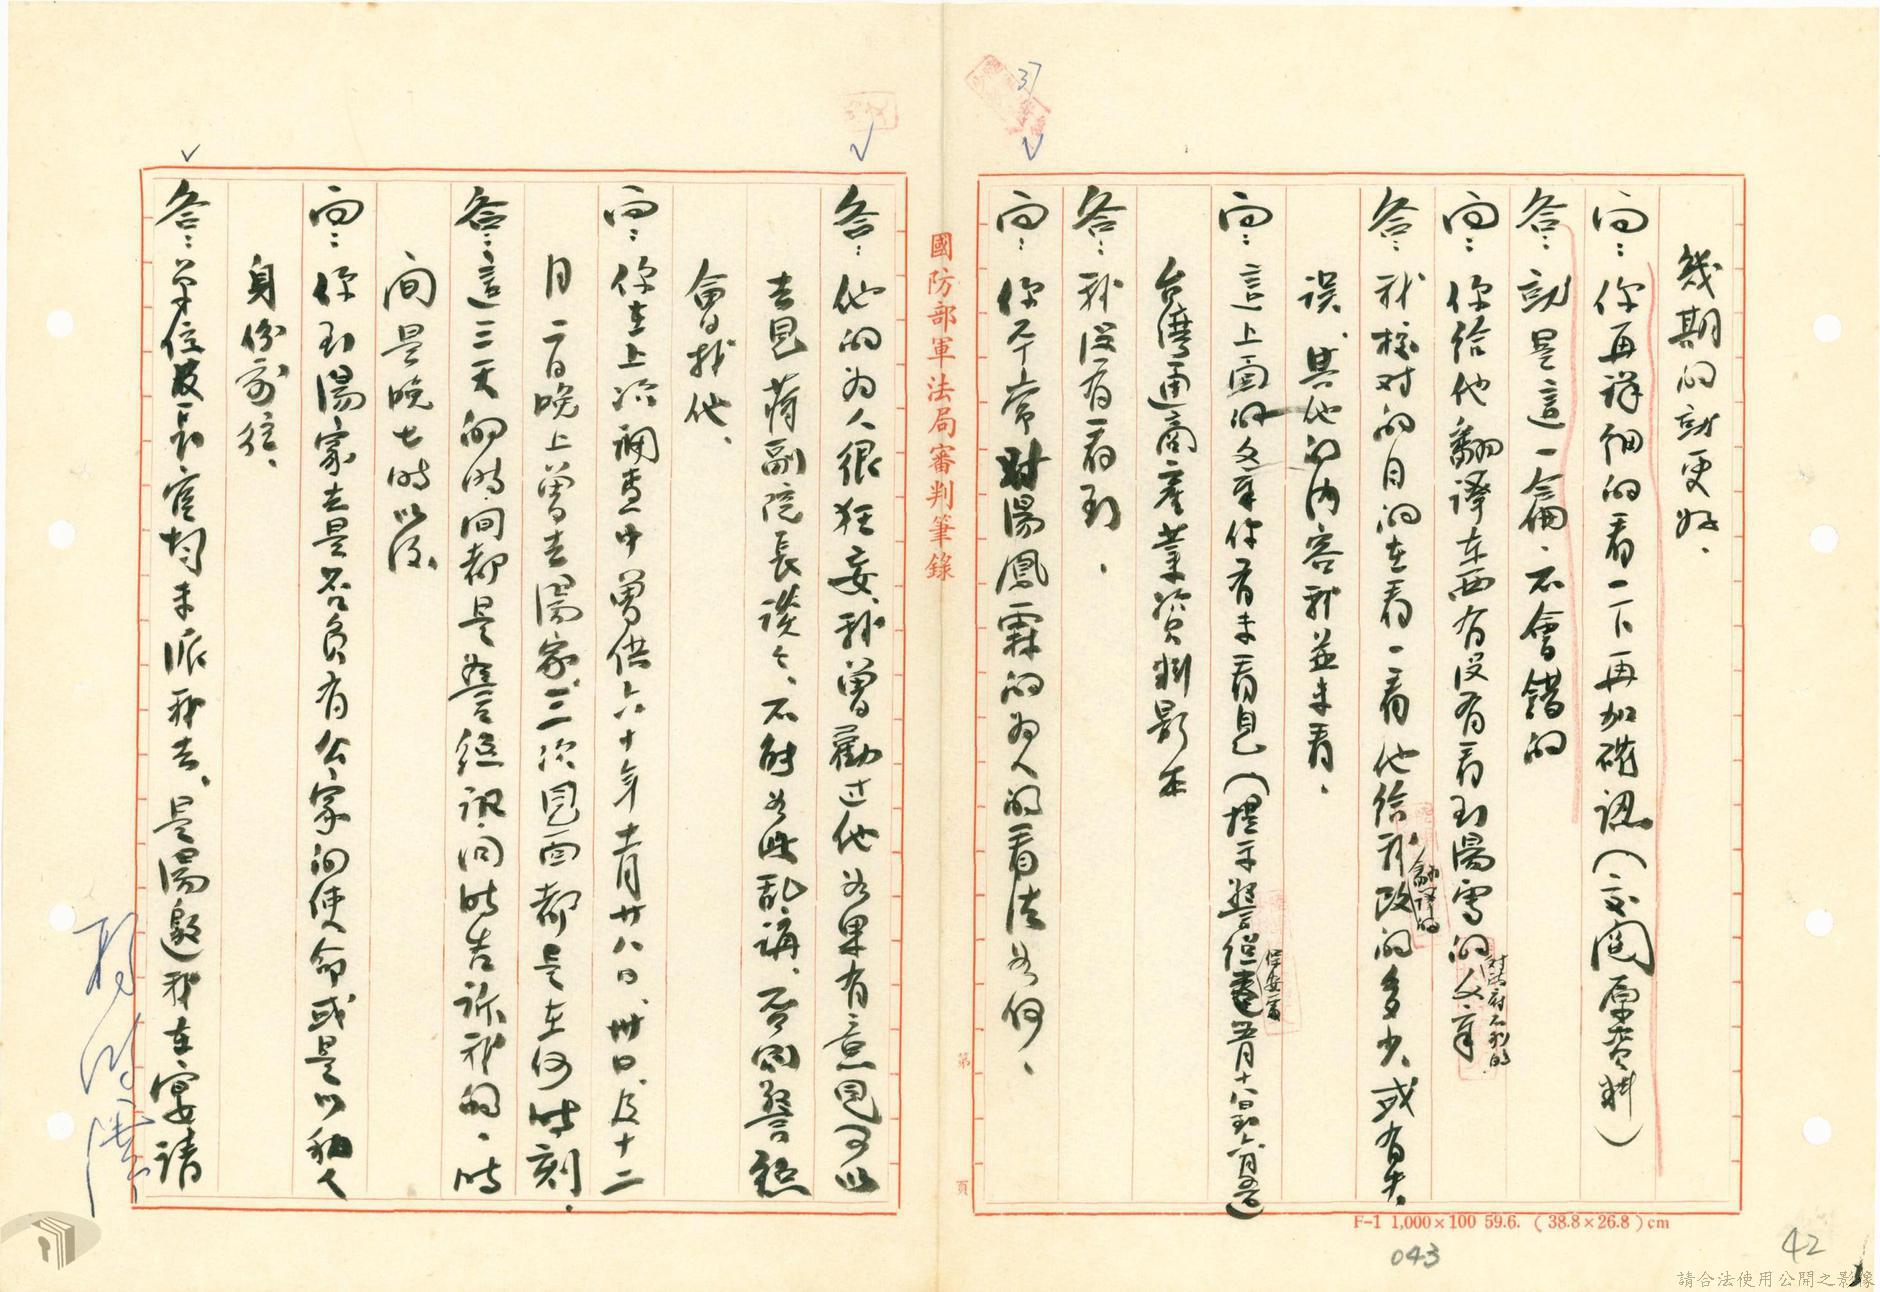 幾期的就更好、
問：你再詳細的看一下再加確認（交閱原資料）
答：就是這一篇、不會錯的
問：你給他翻譯東西有沒有看到湯寫的对政府不利的文章
答：我校对的目的在看一看他給我翻譯的改的多少或有失
誤、其他的內容我並未看、
問：這上面的文章你有未看見（提示警總保安處五月十八日到六月
台灣通商產業資料影本
答：我沒有看到、
問：你平常对湯鳳霖的为人的看法为何、
國防部軍法局審判筆錄
第 頁
答：他的为人很狂妄、我曾勸过他如果有意見可以
去見蔣副院長談談、不能如此乱講、否則警總
會找他、
問：你在上次調查中曾供六十年十一月廿八日、卅日、及十二
月二日晚上曾去湯家、三次見面都是在何時刻、
答：這三天的時間都是警總訊問時告訴我的、時
間是晚七時以後
問：你到湯家去是否負有公家的使命或是以私人
身份前往、
答：單位及長官均未派我去、是湯邀我在宴請
F-1 1,000×100 59.6.（38.8×26.8）cm
043
42
37
請合法使用公開之影像